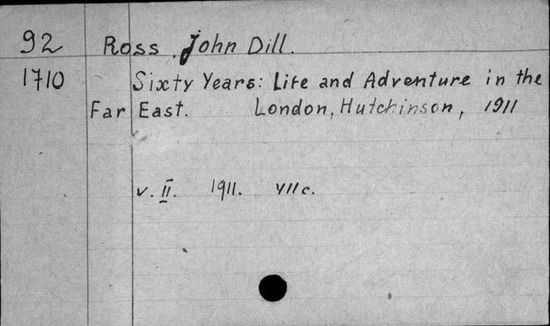 92 Ross, John Dill.
1710 Sixty Years: Life and Adventure in the
Far East. London, Hutchinson, 1911
v. II. 1911. VII c.